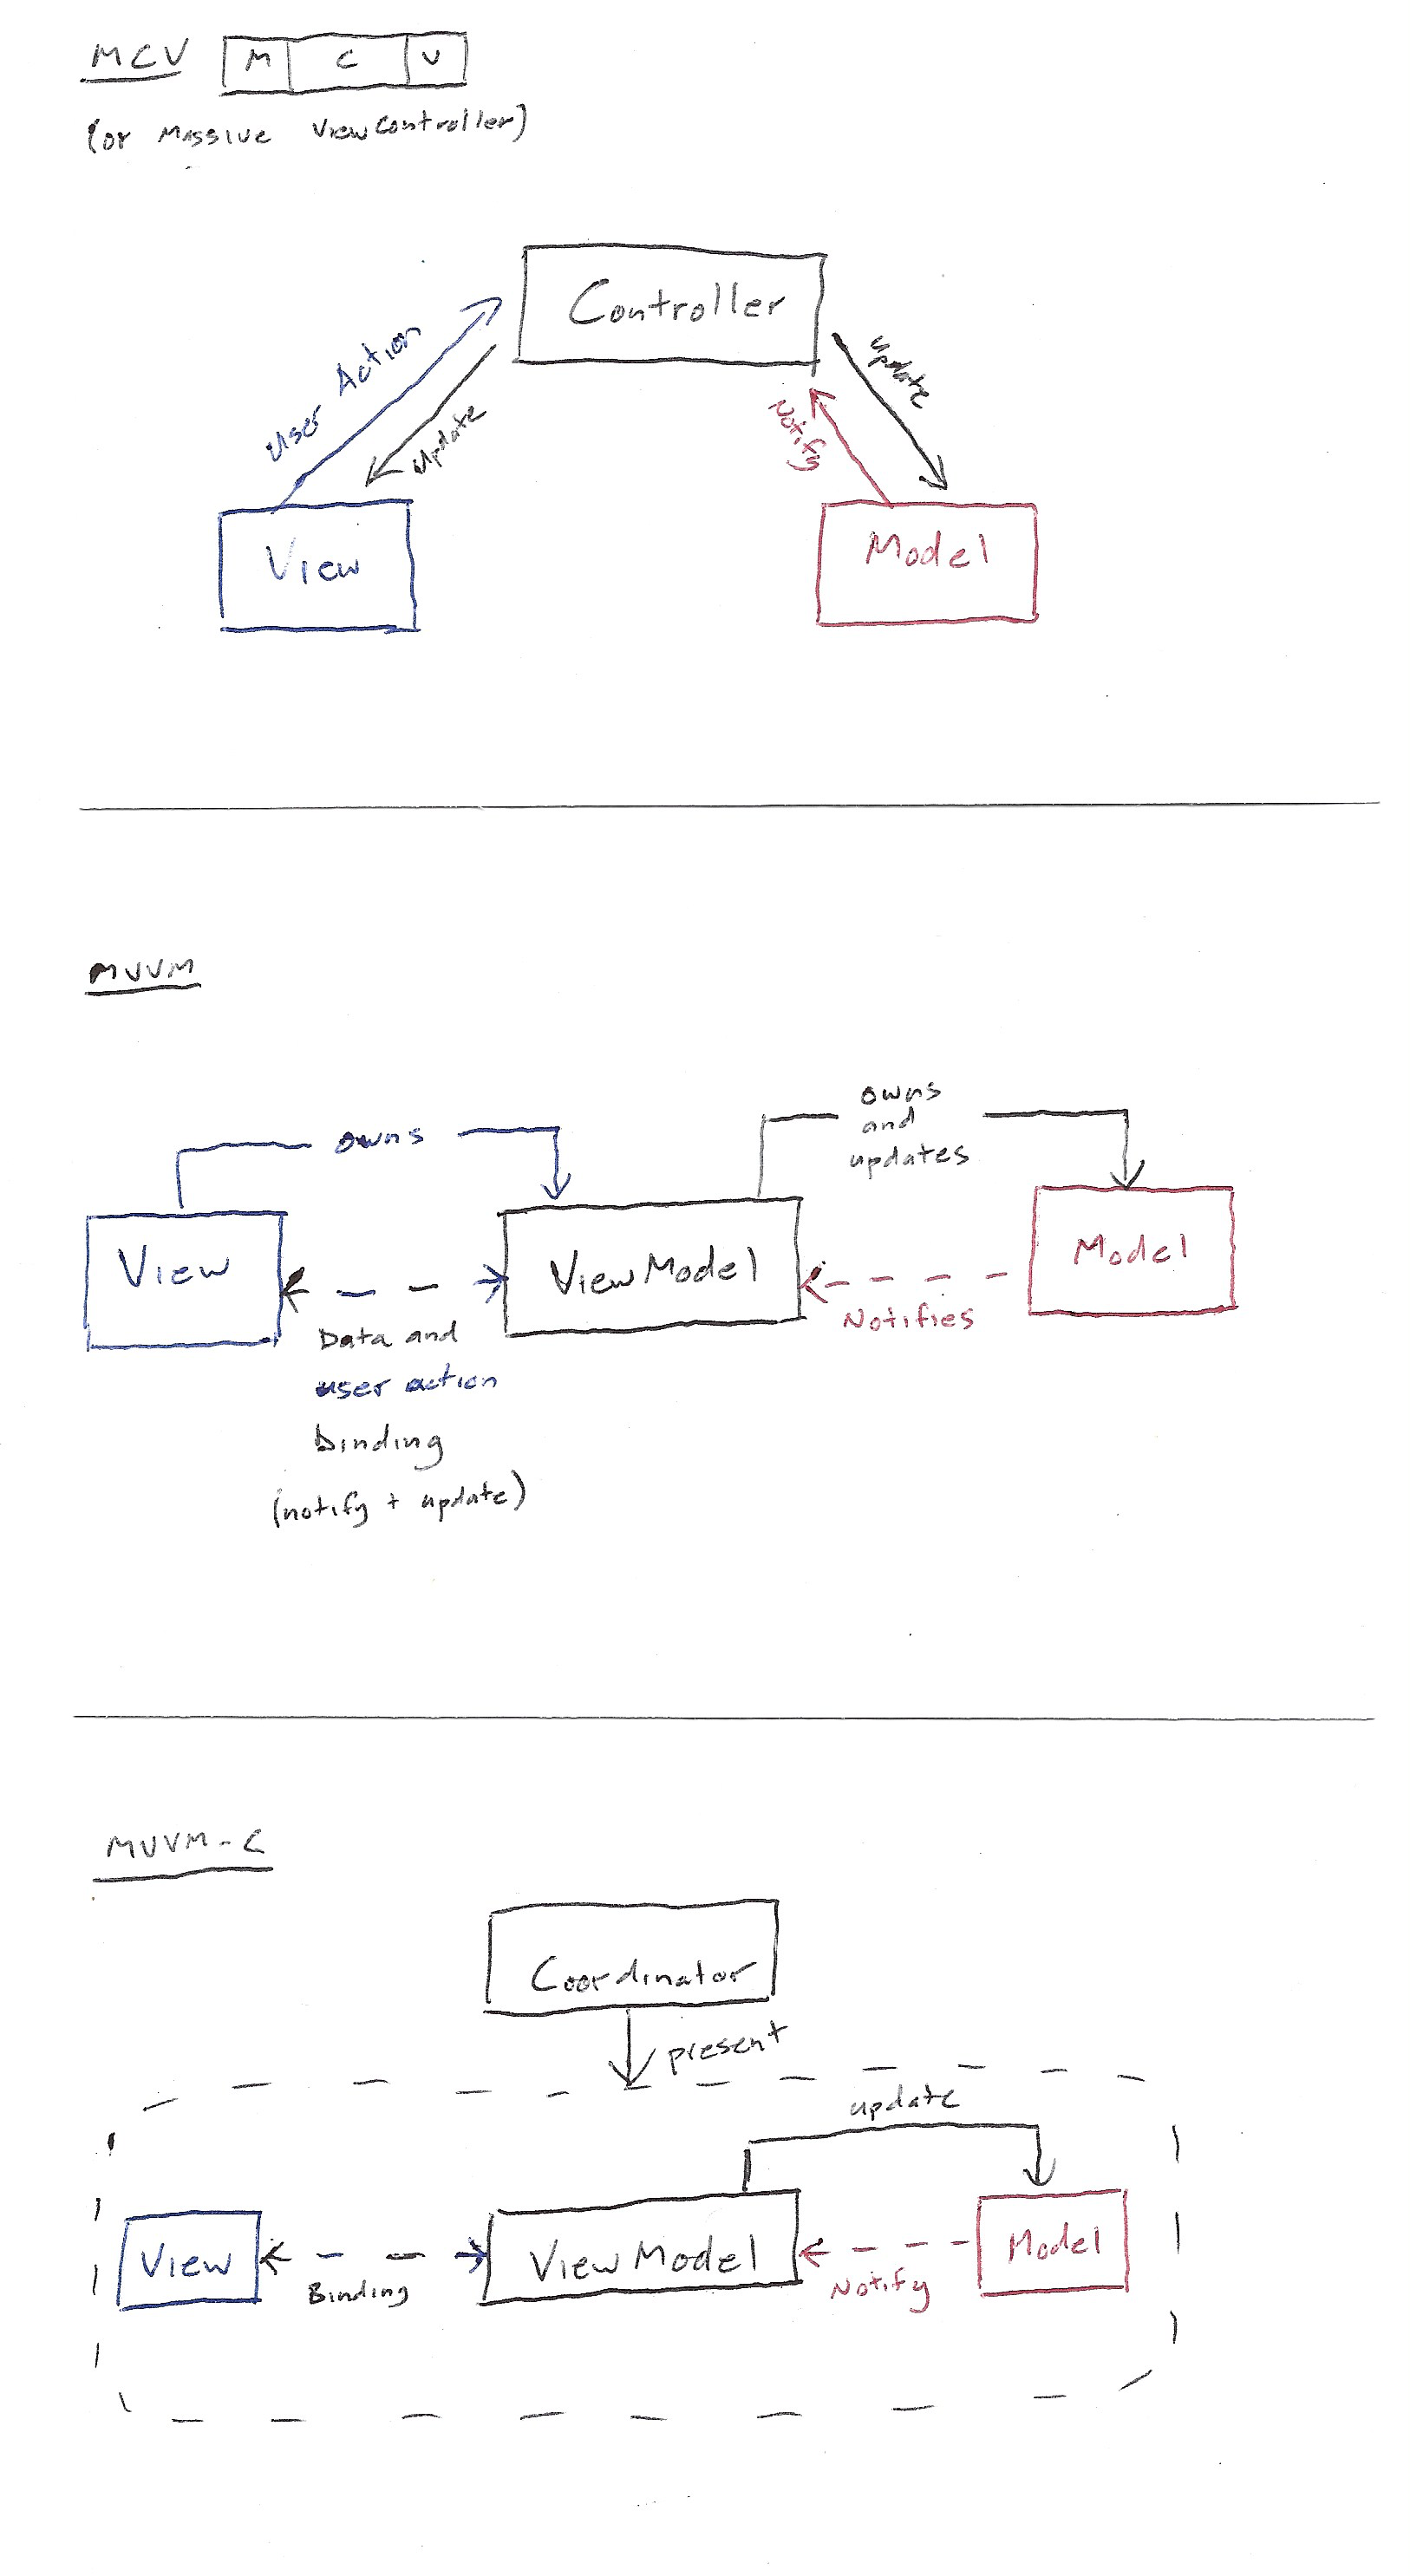 MCV M C V
(or Massive ViewController)
Controller
User Action
update
update
Notify
View
Model
MVVM
owns
owns
and
updates
View
ViewModel
Model
Data and
user action
binding
(notify + update)
Notifies
MVVM-C
Coordinator
present
update
View
ViewModel
Model
Binding
Notify